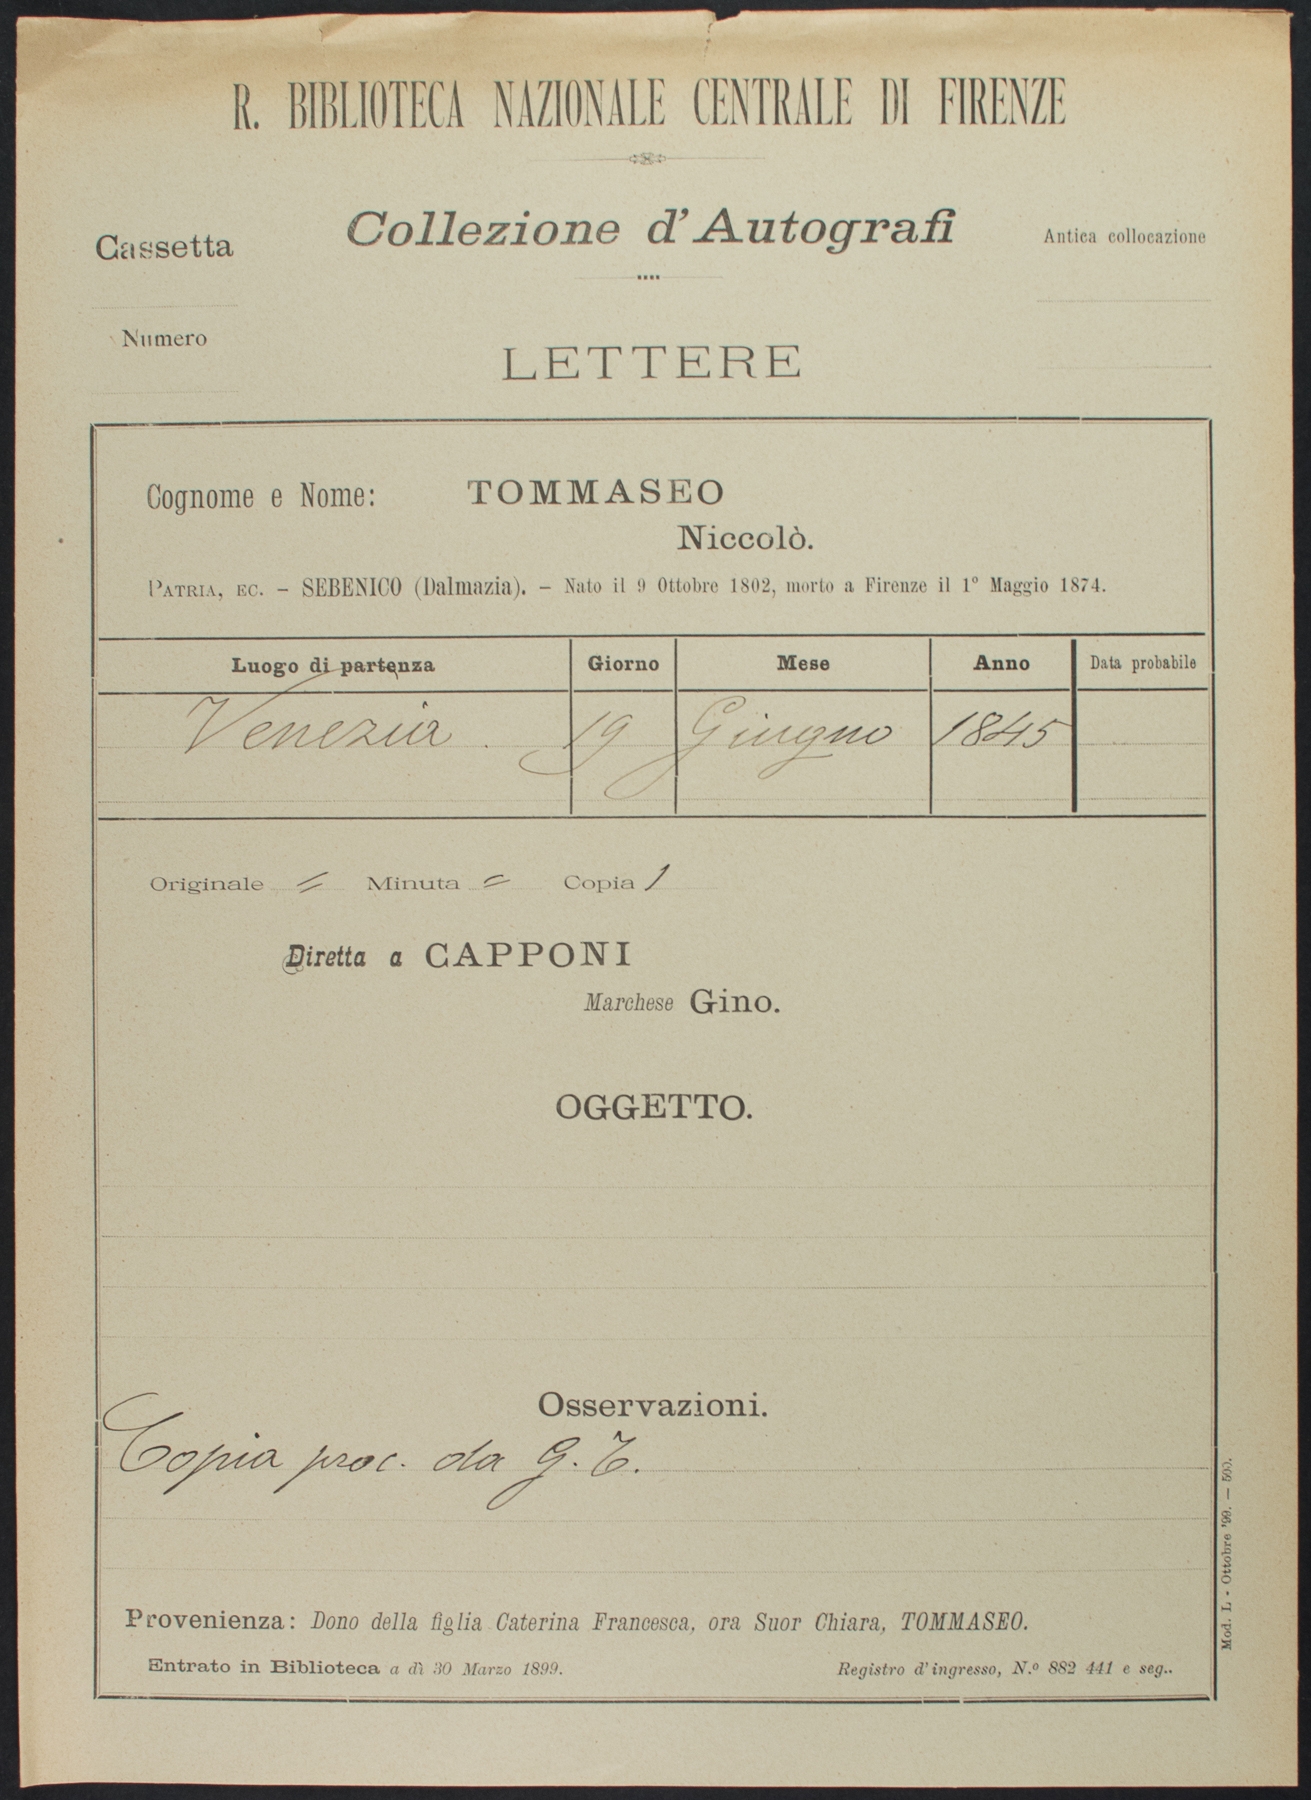 R. BIBLIOTECA NAZIONALE CENTRALE DI FIRENZE
Collezione d'Autografi
Cassetta
Antica collocazione
Numero
LETTERE
Cognome e Nome: TOMMASEO
Niccolò.
PATRIA, EC. – SEBENICO (Dalmazia). – Nato il 9 Ottobre 1802, morto a Firenze il 1° Maggio 1874.
Luogo di partenza Giorno Mese Anno Data probabile
Venezia. 19 Giugno 1845
Originale = Minuta = Copia 1
Diretta a CAPPONI
Marchese Gino.
OGGETTO.
Osservazioni.
Copia proc. da G. T.
Provenienza: Dono della figlia Caterina Francesca, ora Suor Chiara, TOMMASEO.
Entrato in Biblioteca a dì 30 Marzo 1899. Registro d'ingresso, N.° 882 441 e seg..
Mod. L - Ottobre '99. — 500.